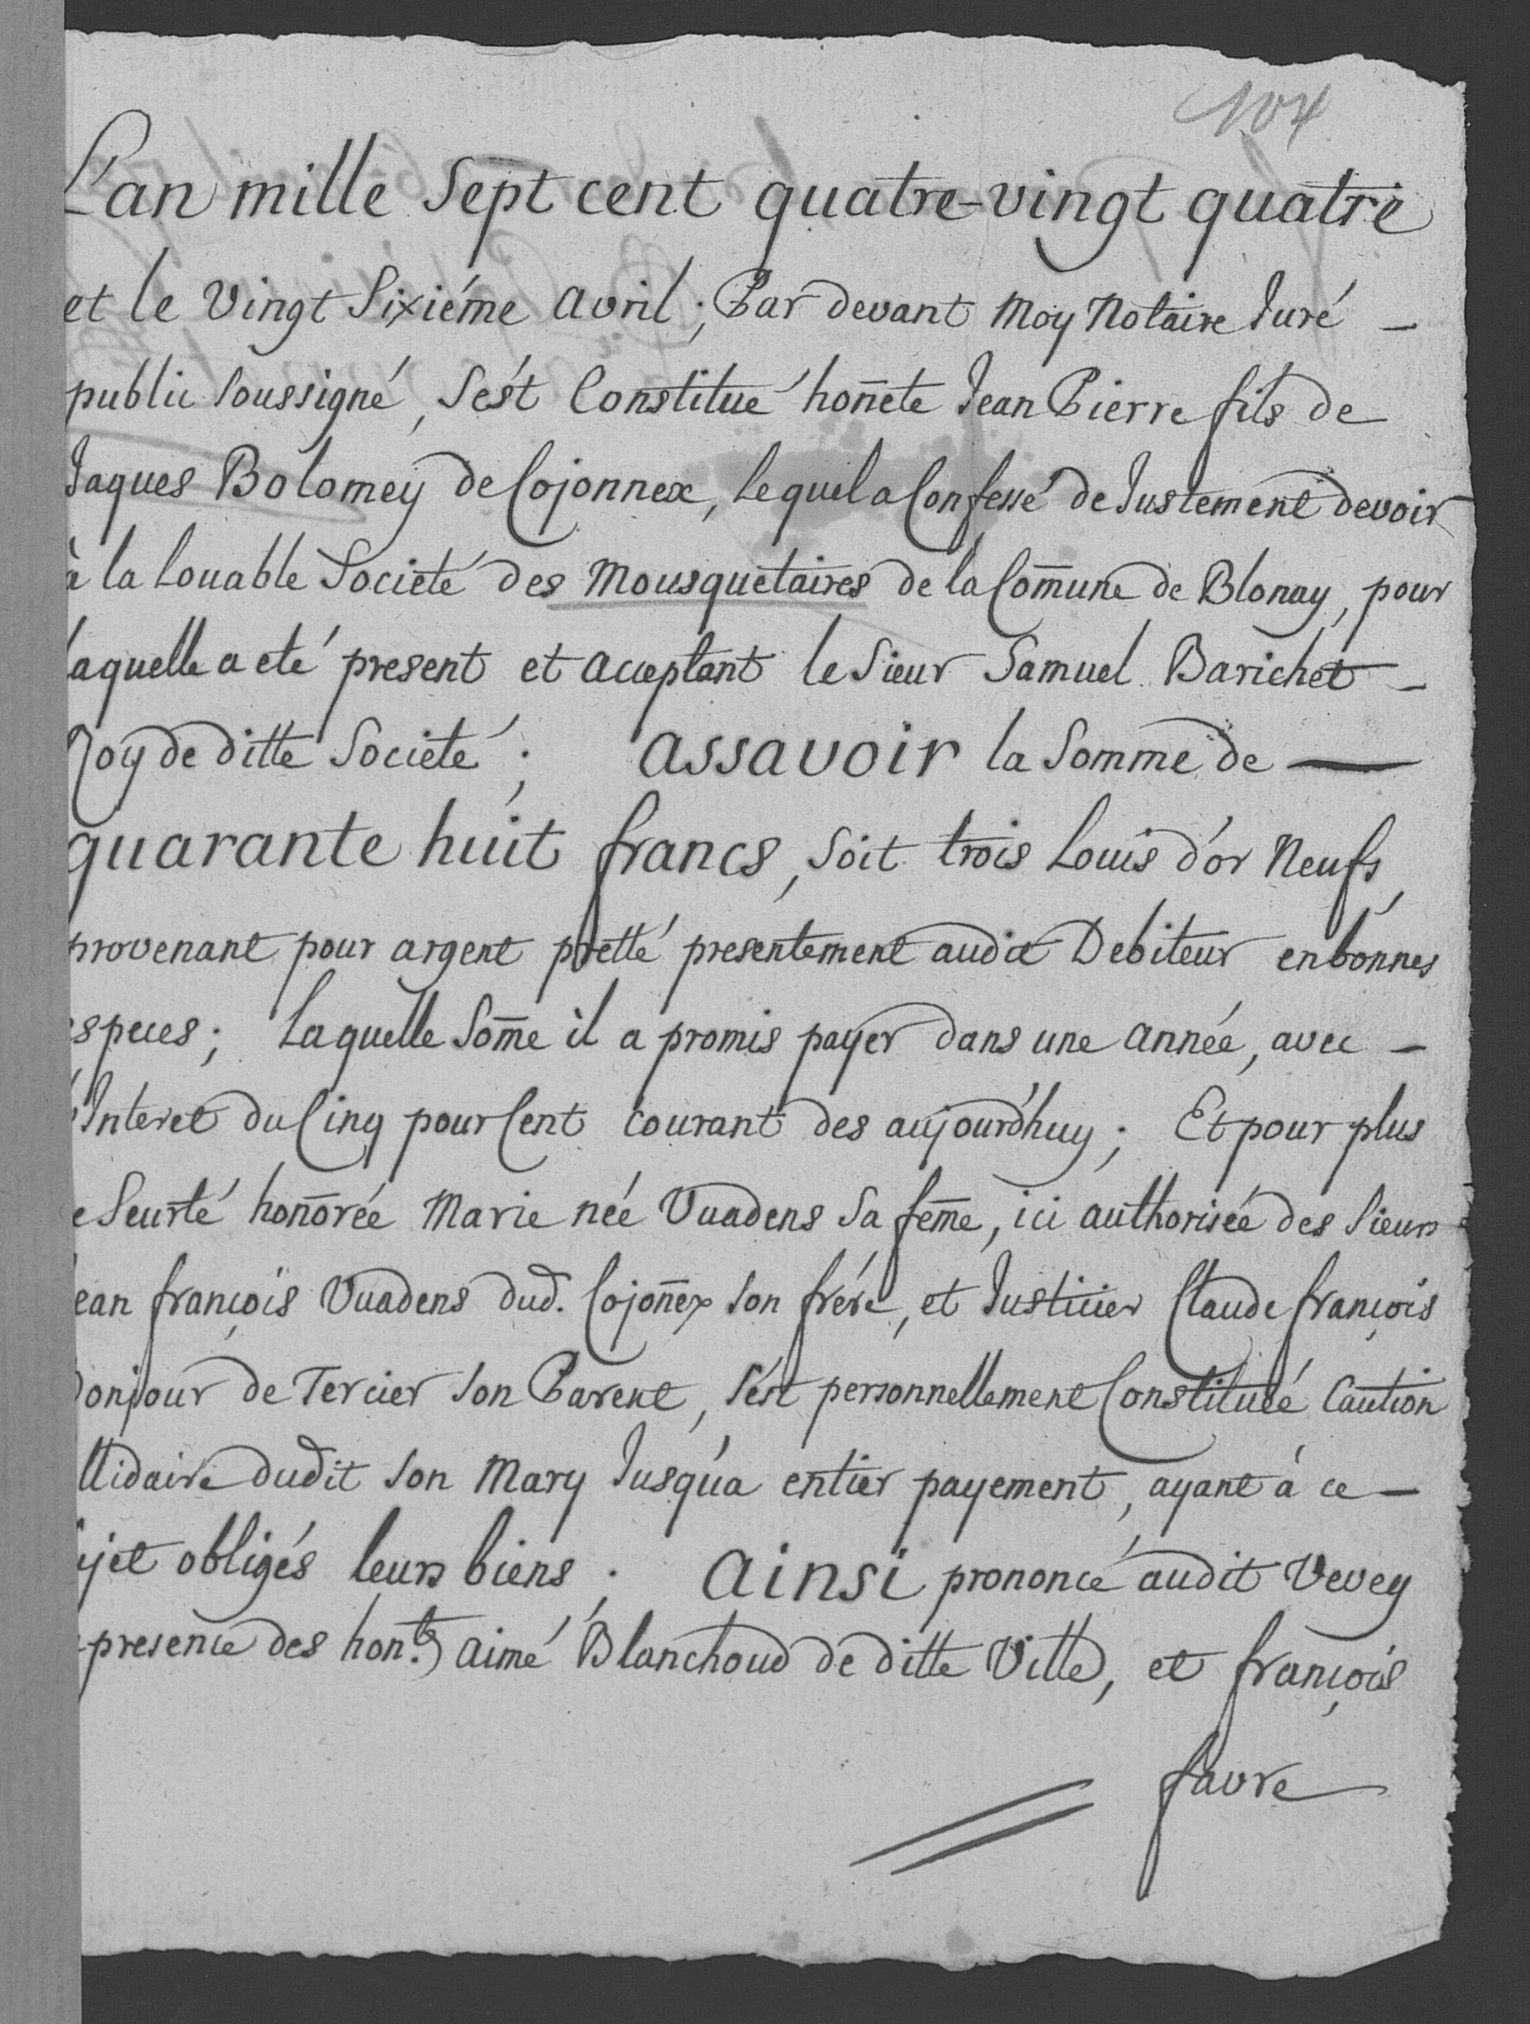 104
L'an mille sept cent quatre-vingt quatre
et le vingt sixiéme avril; Par devant moy Notaire Juré —
public soussigné, s'est Constitué hon̄ete Jean Pierre fils de
Jaques Bolomey de Cojonnex, lequel a Confessé de Justement devoir
à la louable Societé des Mousquetaires de la Com̄une de Blonay, pour
laquelle a eté present et acceptant le Sieur Samuel Barichet —
Roy de ditte Societé; assavoir la Somme de —
quarante huit francs, soit trois Louis d'or Neufs,
provenant pour argent pretté presentement audit Debiteur en bonnes
especes; Laquelle Som̄e il a promis payer dans une année, avec —
l'Interet du Cinq pour Cent courant des aujourd'huy; Et pour plus
e Seurté hon̄orée Marie née Vuadens sa fem̄e, ici authorisée des Sieurs
Jean françois Vuadens dud. Cojon̄ex son frére, et Justicier Claude françois
Bonjour de Tercier son Parent, s'est personnellement Constituée Caution
llidaire dudit son Mary Jusqu'a entier payement, ayant à ce —
ujet obligés leurs biens; ainsi prononcé audit Vevey
presence des hon.ts aimé Blanchoud de ditte Ville, et françois
favre